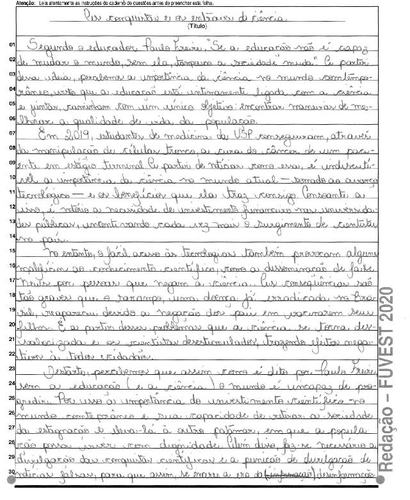 Atenção: Leia atentamente as instruções do caderno de questões antes de preencher esta folha.
As conquistas e os entraves da ciência
(Título)
01 Segundo o educador Paulo Freire, "Se a educação não é capaz
02 de mudar o mundo, sem ela, tampouco a sociedade muda". A partir
03 dessa ideia, percebemos a importância da ciência no mundo contemporâ-
04 neo, visto que a educação está intimamente ligada com a ciência
05 e juntas, caminham com um único objetivo: encontrar maneiras de me-
06 lhorar a qualidade de vida da população.
07 Em 2019, estudantes de medicina da USP conseguiram, através
08 da manipulação de células tronco, a cura do câncer de um paci-
09 ente em estágio terminal. A partir de notícias como essa, é indiscutí-
10 vel a importância da ciência no mundo atual — somado ao avanço
11 tecnológico — e os benefícios que ela traz consigo. Consoante a
12 isso, é nítida a necessidade de investimento financeiro nas universida-
13 des públicas, incentivando cada vez mais o surgimento de cientistas
14 no país.
15 No entanto, o fácil acesso às tecnologias também provocam alguns
16 ao conhecimento científico, como a disseminação de fake
17 news por pessoas que negam a ciência. As consequências são
18 tão graves que o sarampo, uma doença já erradicada no Bra-
19 sil, reapareceu devido a negação dos pais em vacinarem seus
20 filhos. É a partir desses problemas que a ciência se torna des-
21 valorizada e os cientistas desestimulados, trazendo efeitos nega-
22 tivos à todos cidadãos.
23 Destarte, percebemos que assim como é dito por Paulo Freire,
24 sem a educação (e a ciência) o mundo é incapaz de pro-
25 gredir. Por isso a importância do investimento científico no
26 mundo contemporâneo e sua capacidade de retirar a sociedade
27 da estagnação e levá-la à outro patamar, em que a popula-
28 ção possa viver com dignidade. Além disso, faz-se necessária a
29 divulgação das conquistas científicas e a punição de divulgação de
30 notícias falsas, para que assim, se morra a era da desinformação
Redação – FUVEST 2020